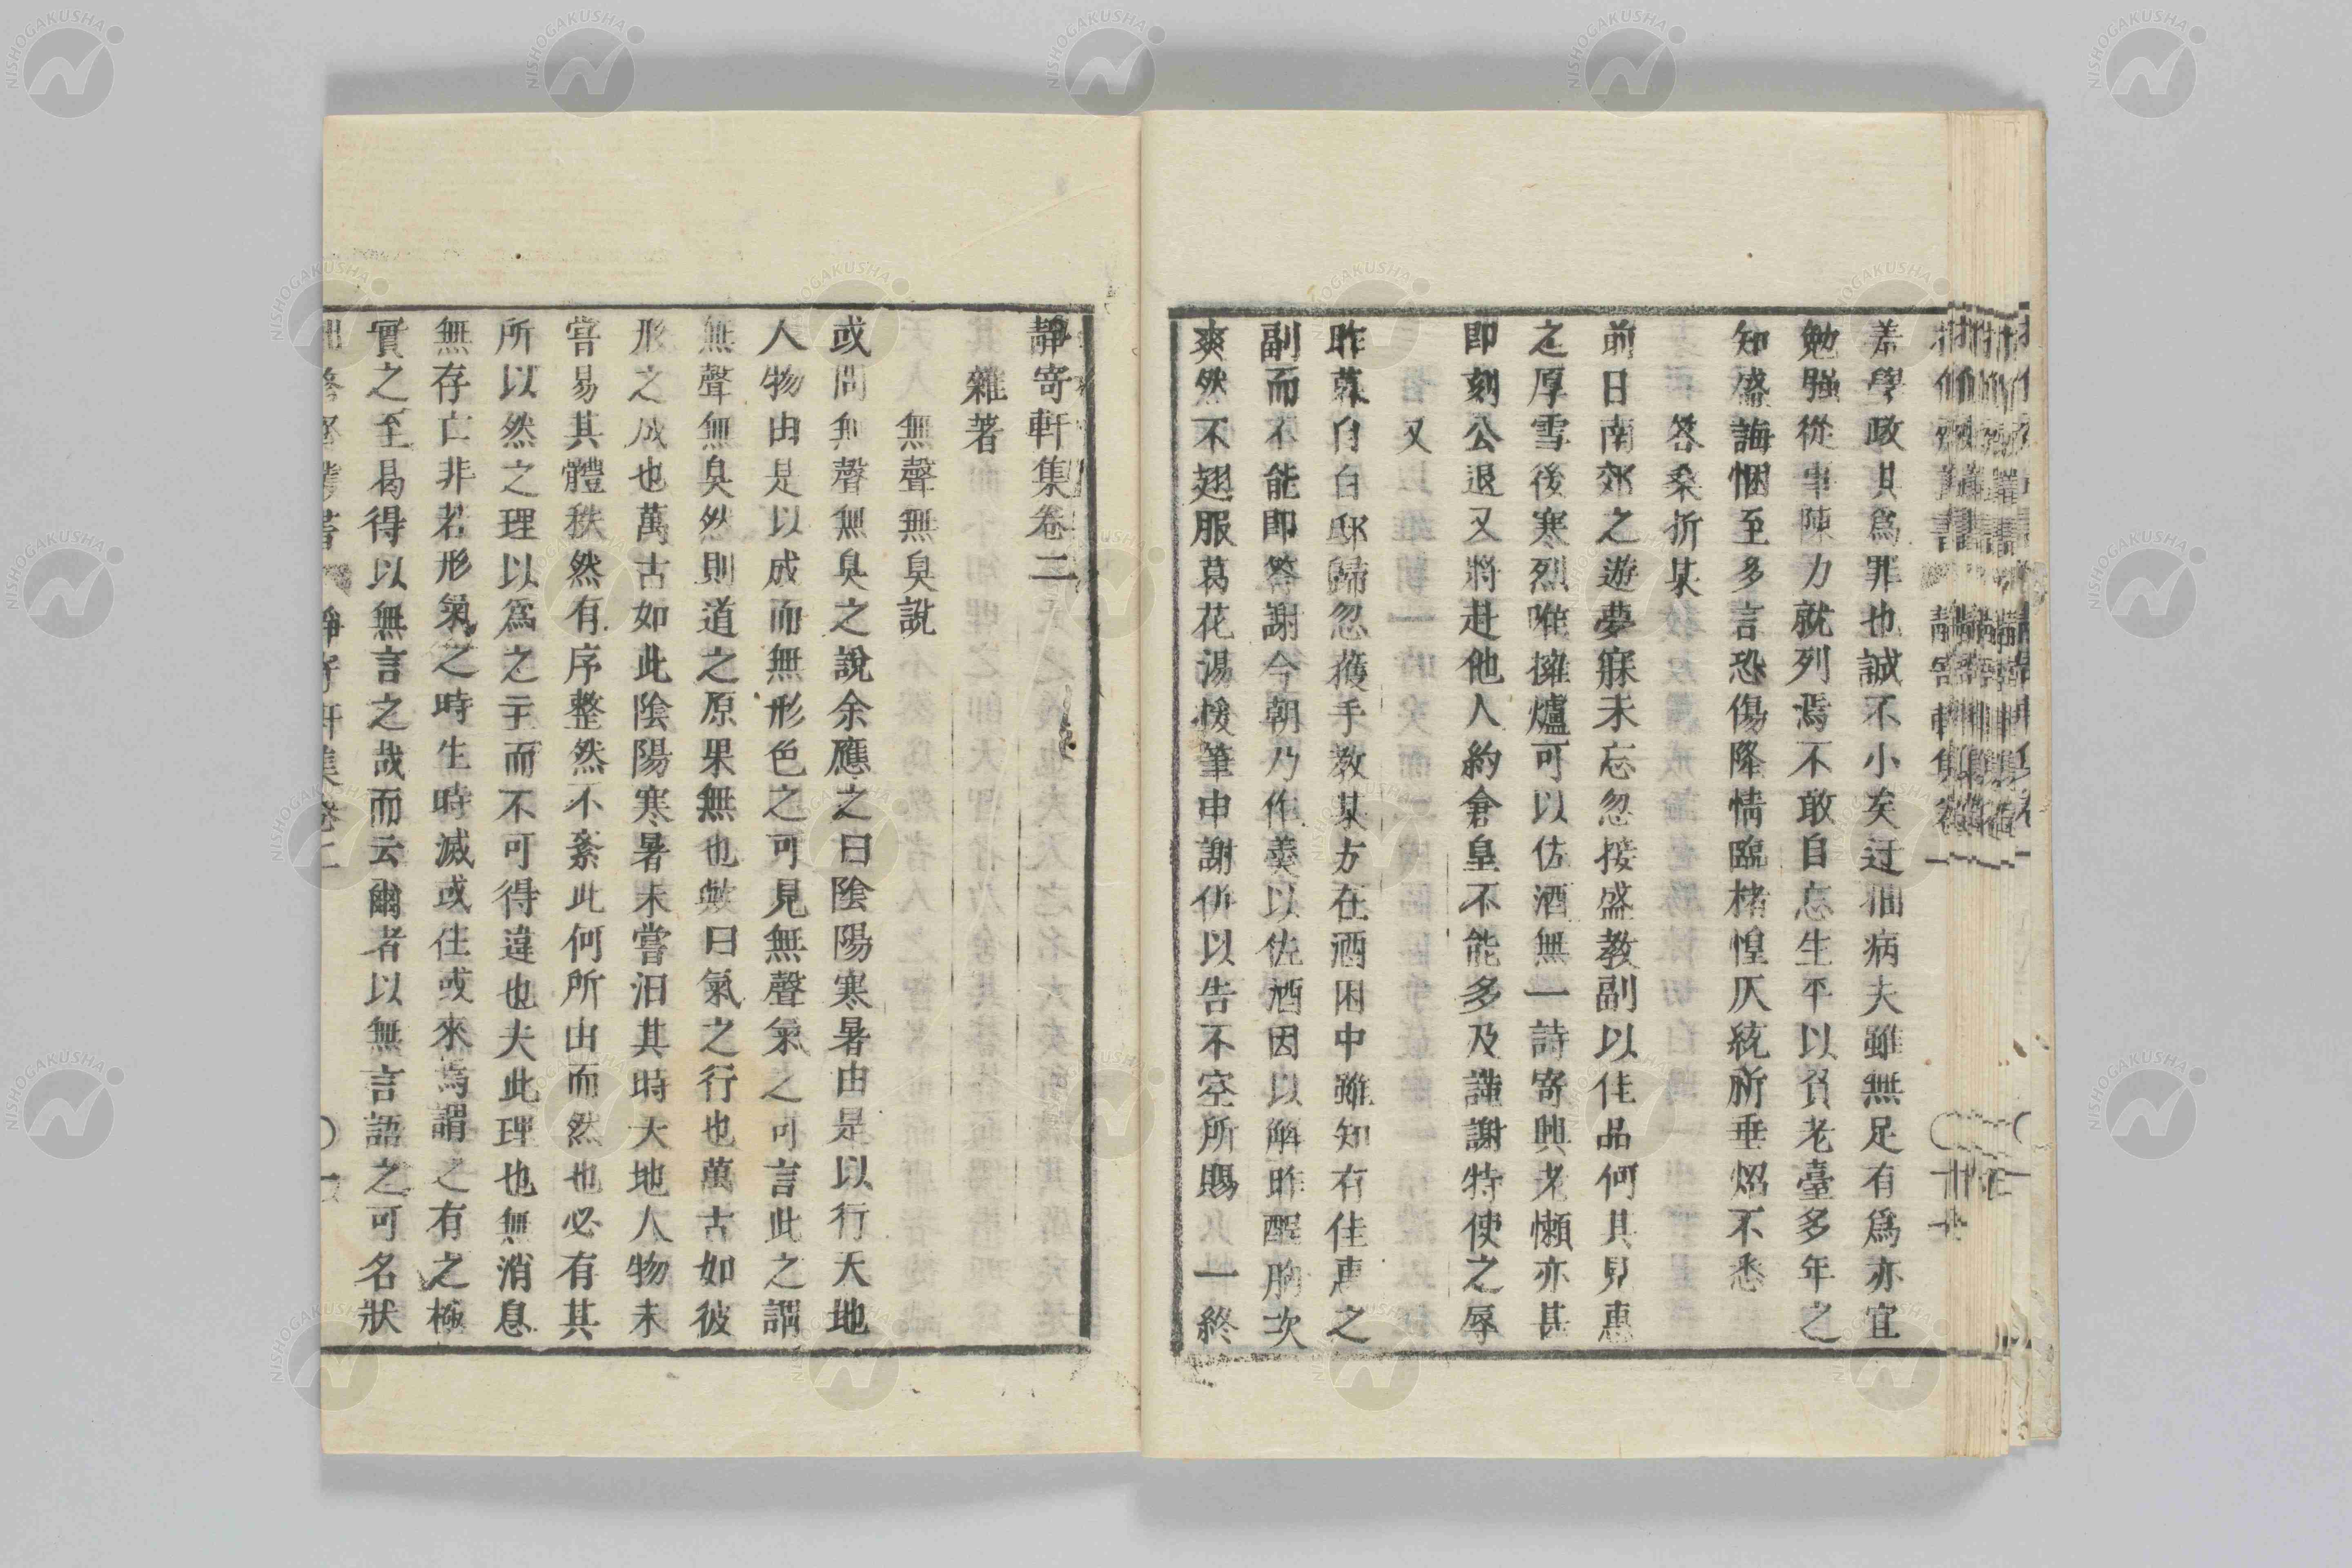 羞學政其爲罪也誠不小矣迂佃病夫雖無足有爲亦宜
勉强從事陳力就列焉不敢自忘生平以貧老臺多年之
知盛誨悃至多言恐傷降情臨楮惶仄統祈垂炤不悉
答桑折某
前日南郊之遊夢寐未忘忽接盛教副以佳品何其見惠
之厚雪後寒烈唯擁爐可以佐酒無一詩寄興老懶亦甚
即刻公退又將赴他人約倉皇不能多及謹謝特使之辱
又
昨某自白邸歸忽獲手教某方在酒困中雖知有佳惠之
副而不能即答謝今朝乃作羹以佐酒因以解昨酲胸次
爽然不翅服葛花湯援筆申謝併以告不空所賜 一終
靜寄軒集卷二
雜著
無聲無臭說
或問無聲無臭之說余應之曰陰陽寒暑由是以行天地
人物由是以成而無形色之可見無聲氣之可言此之謂
無聲無臭然則道之原果無也歟曰氣之行也萬古如彼
形之成也萬古如此陰陽寒暑未嘗汨其時天地人物未
嘗易其體秩然有序整然不紊此何所由而然也必有其
所以然之理以爲之主而不可得違也夫此理也無消息
無存亡非若形氣之時生時滅或往或來焉謂之有之極
實之至曷得以無言之哉而云爾者以無言語之可名狀
靜寄軒集卷二 〇一